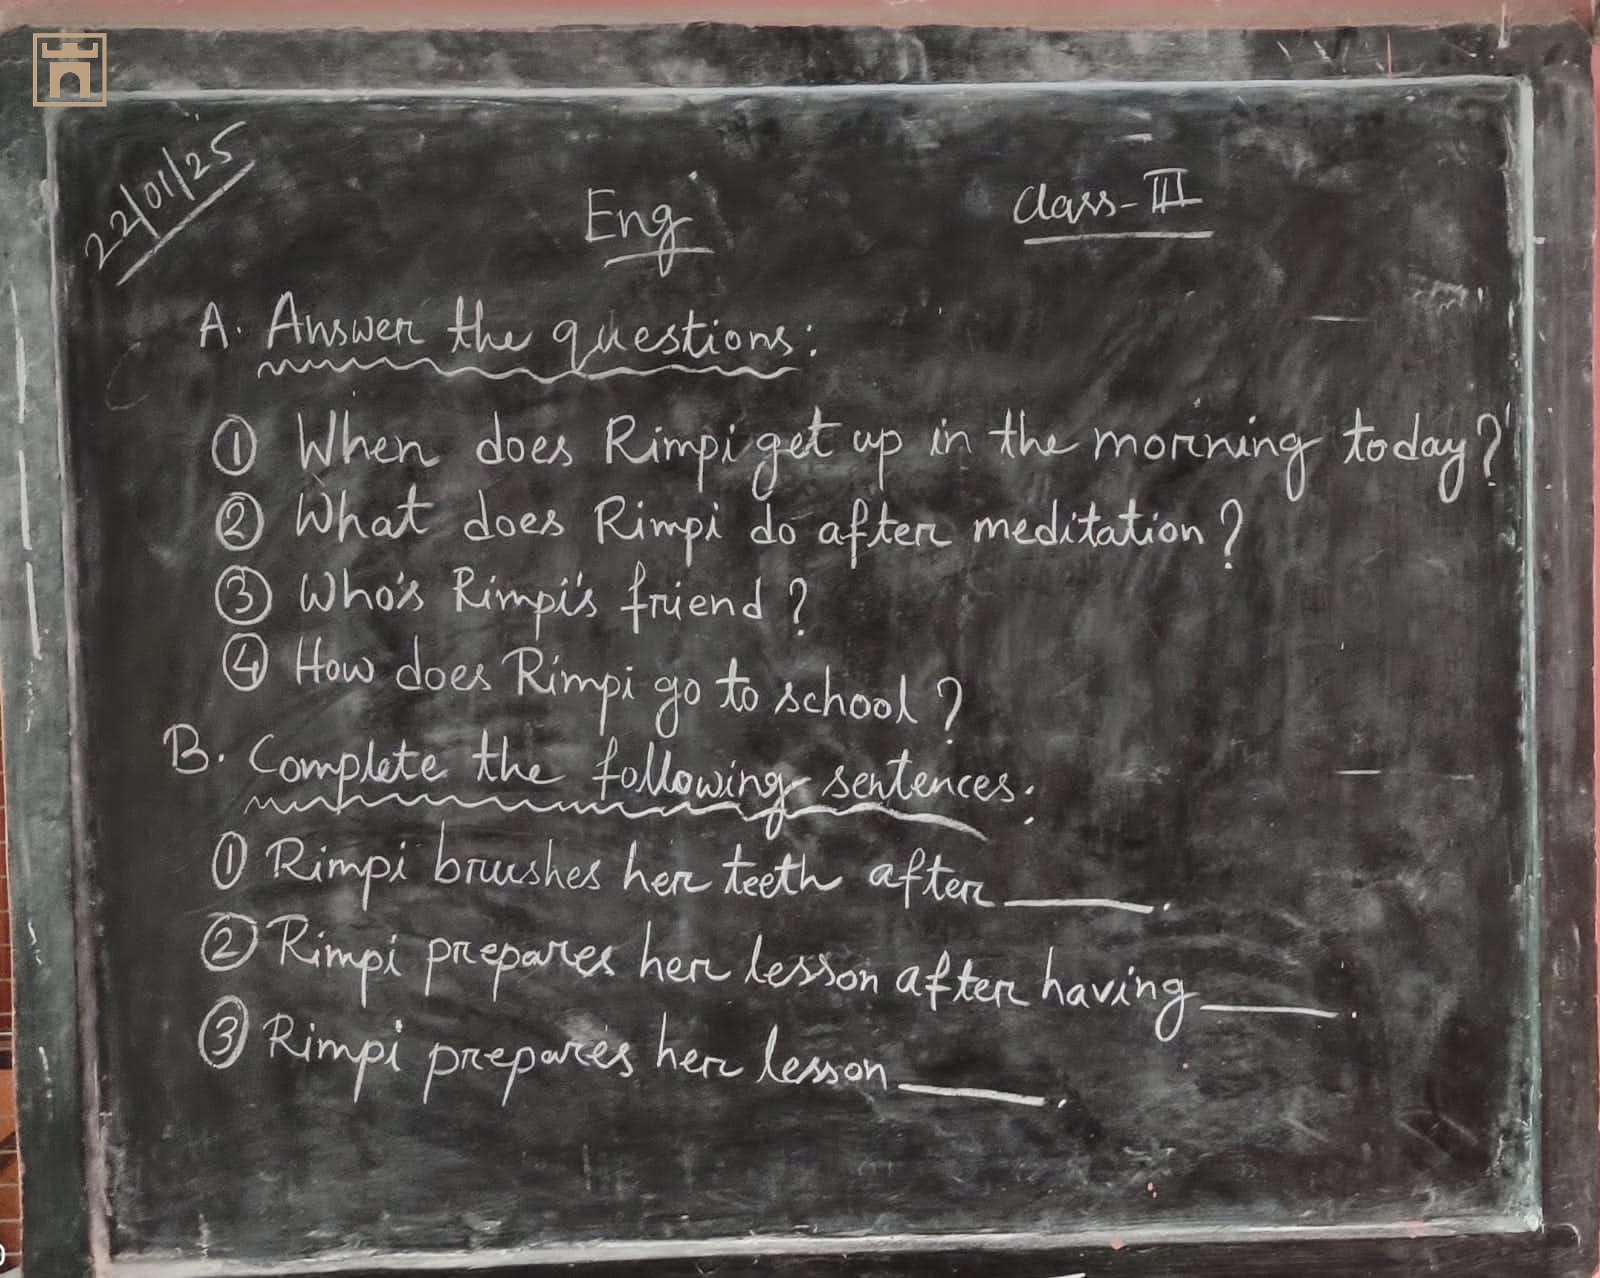 22/01/25
Eng
Class-III
A. Answer the questions:
① When does Rimpi get up in the morning today?
② What does Rimpi do after meditation?
③ Who's Rimpi's friend?
④ How does Rimpi go to school?
B. Complete the following sentences:
① Rimpi brushes her teeth after ______.
② Rimpi prepares her lesson after having ______.
③ Rimpi prepares her lesson ______.